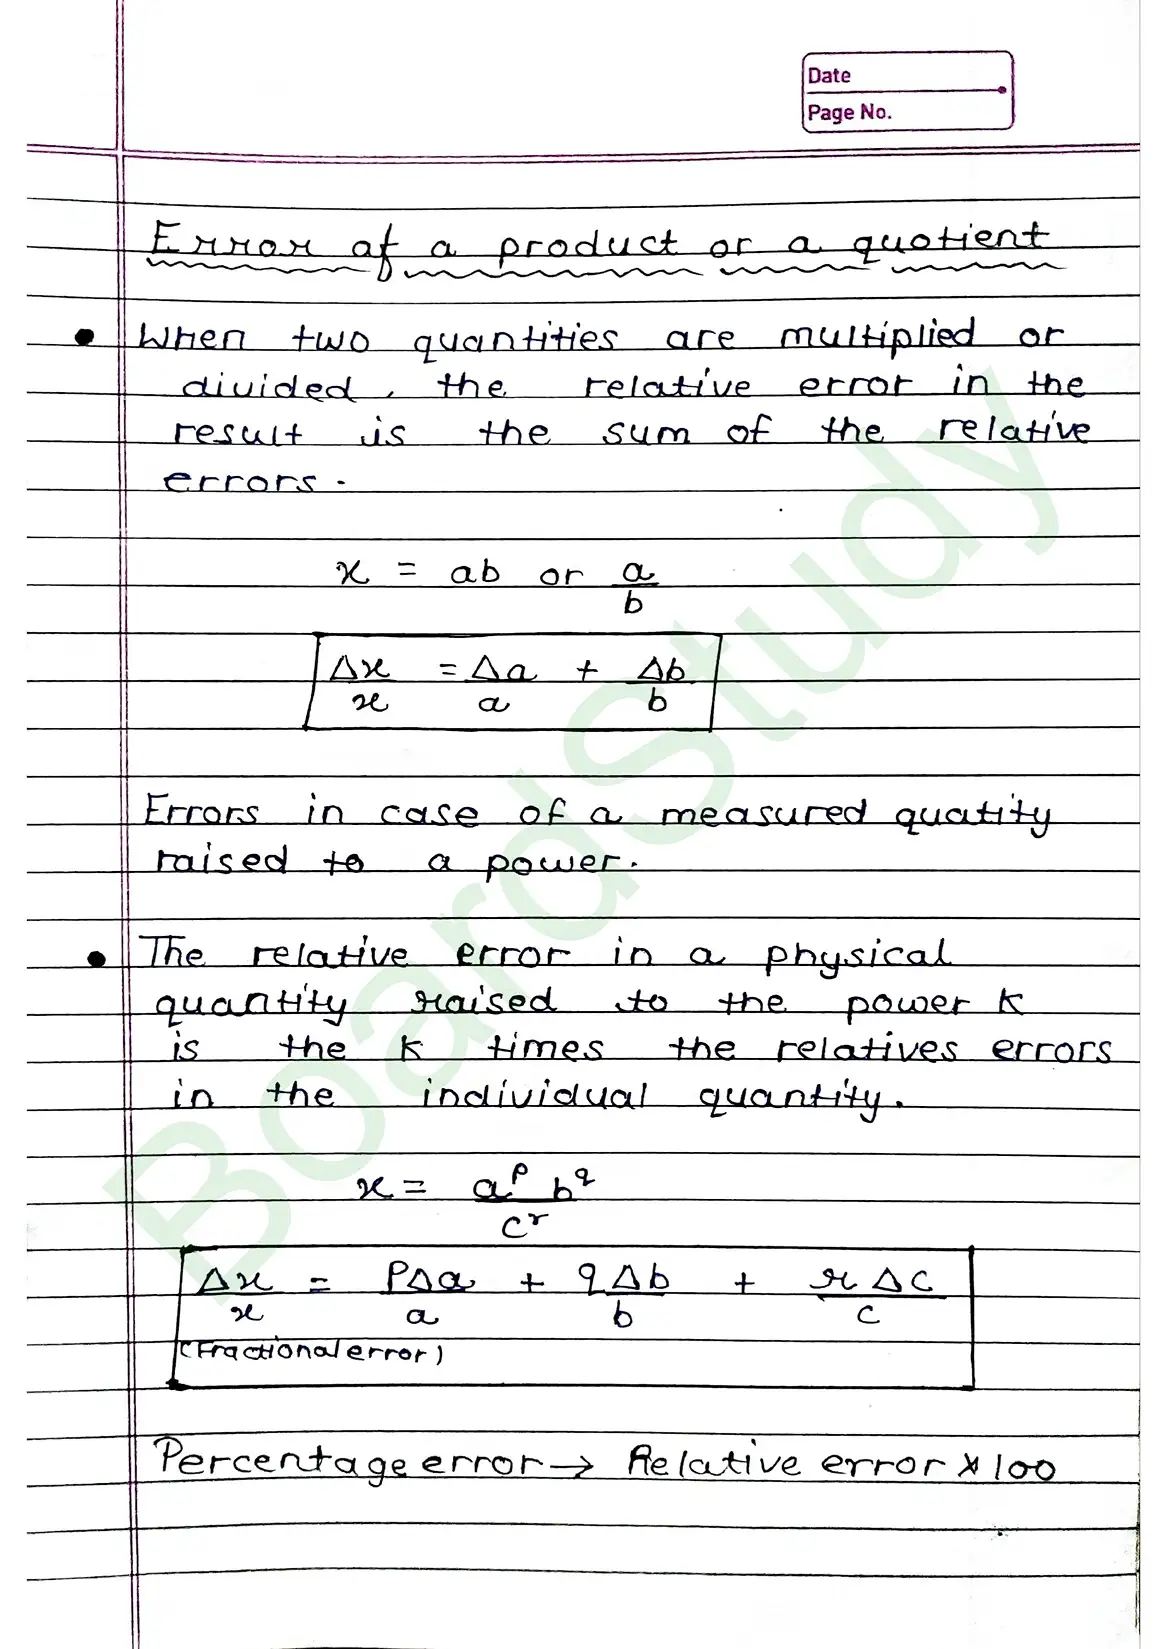 Date
Page No.
Error of a product or a quotient
• When two quantities are multiplied or
divided, the relative error in the
result is the sum of the relative
errors.
x = ab or a/b
Δx/x = Δa/a + Δb/b
Errors in case of a measured quatity
raised to a power.
• The relative error in a physical
quantity raised to the power k
is the k times the relatives errors
in the individual quantity.
x = a^p b^q / c^r
Δx/x = pΔa/a + qΔb/b + rΔc/c
(Fractional error)
Percentage error → Relative error × 100
BoardStudy